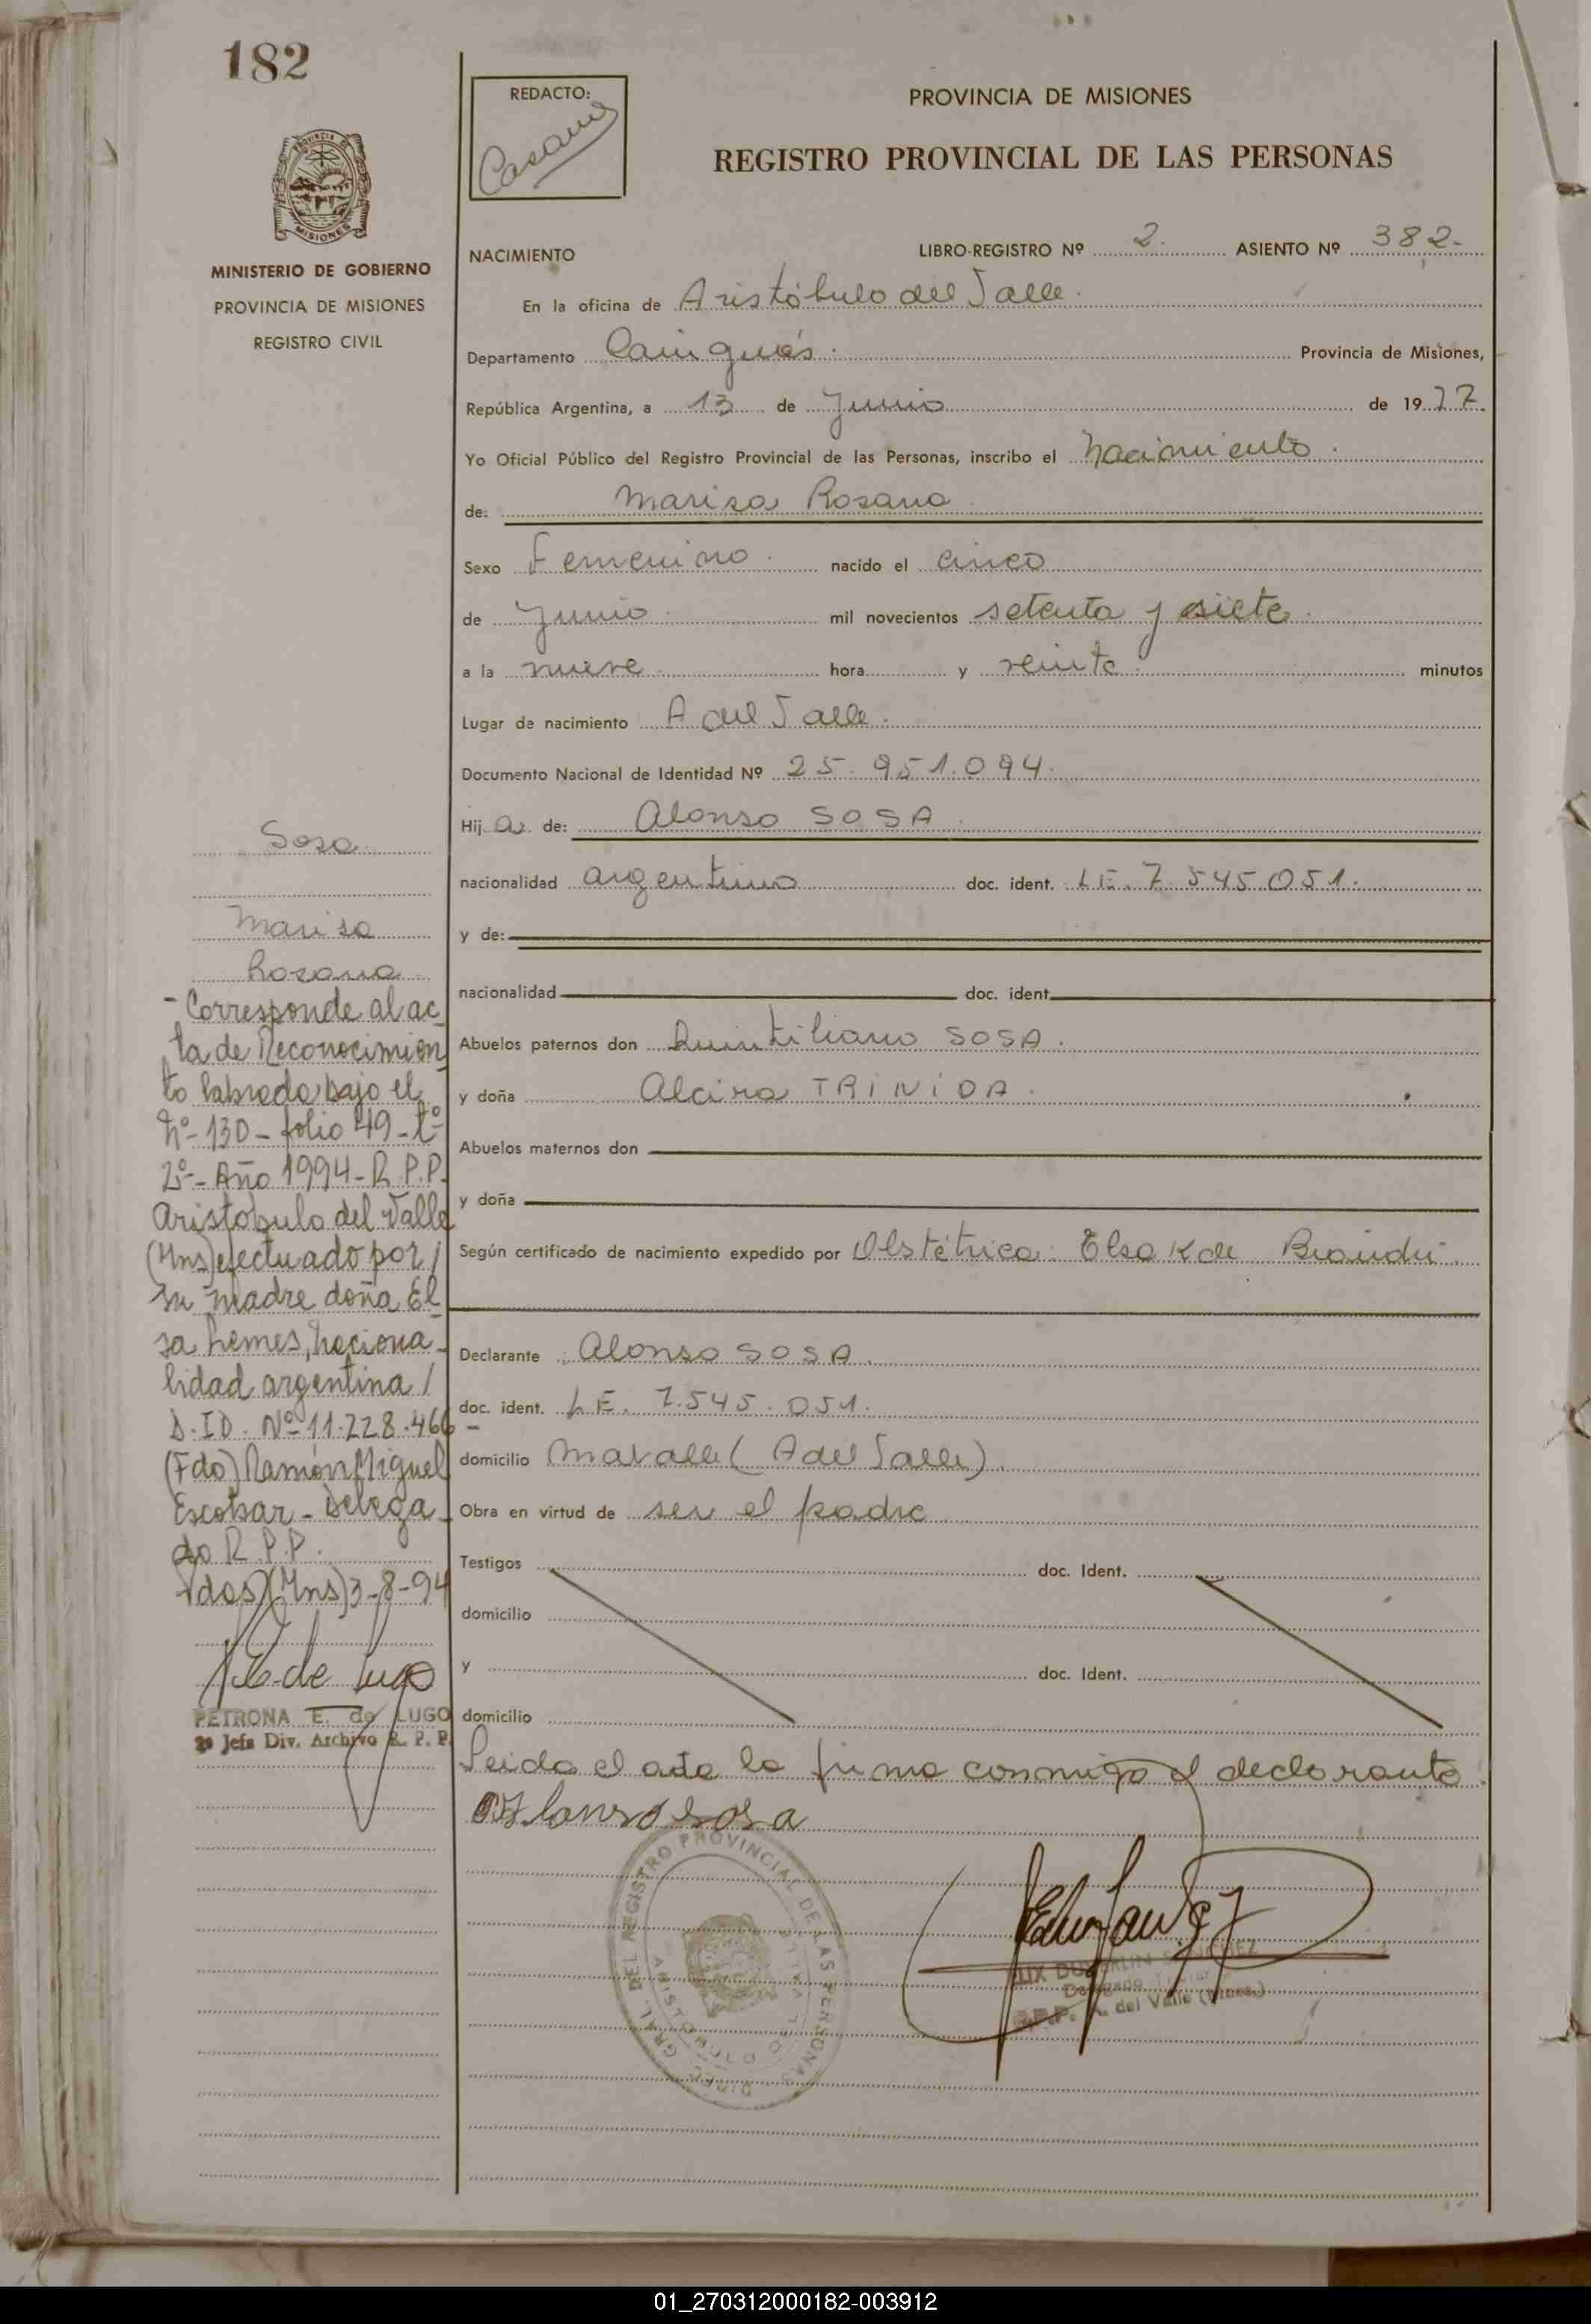 182
PROVINCIA
MISIONES
MINISTERIO DE GOBIERNO
PROVINCIA DE MISIONES
REGISTRO CIVIL
REDACTO:
PROVINCIA DE MISIONES
REGISTRO PROVINCIAL DE LAS PERSONAS
NACIMIENTO
LIBRO-REGISTRO Nº 2. ASIENTO Nº 382.
En la oficina de Aristóbulo del Valle.
Departamento Cainguás. Provincia de Misiones,
República Argentina, a 13 de Junio de 1977.
Yo Oficial Público del Registro Provincial de las Personas, inscribo el Nacimiento.
de: Marisa Rosana
Sexo Femenino. nacido el cinco
de Junio. mil novecientos setenta y siete.
a la nueve hora y veinte. minutos
Lugar de nacimiento A del Valle.
Documento Nacional de Identidad Nº 25.951.094.
Hija de: Alonso SOSA.
nacionalidad argentino doc. ident. LE. 7.545.051.
y de:
nacionalidad doc. ident.
Abuelos paternos don Quintiliano SOSA.
y doña Alcira TRINIDA.
Abuelos maternos don
y doña
Según certificado de nacimiento expedido por Obstétrica: Elsa K de
Declarante : Alonso SOSA.
doc. ident. LE. 7.545.051.
domicilio (A del Valle).
Obra en virtud de ser el padre
Testigos doc. Ident.
domicilio
y doc. Ident.
domicilio
Leida el acta la firma conmigo el declarante.
Alonso sosa
DIREC. GRAL. DEL REGISTRO PROVINCIAL DE LAS PERSONAS
ARISTOBULO DEL VALLE
Delegado Titular
R.P.P. A. del Valle (Mnes.)
Sosa
Marisa
Rosana
- Corresponde al ac
ta de Reconocimien
to labrado bajo el
Nº- 130 - folio 49 - tº
2º- Año 1994 - R.P.P.
Aristobulo del Valle
(Mns) efectuado por /
su madre doña El
sa Lemes, naciona-
lidad argentina /
D.I.D. Nº 11.228.466 -
(Fdo) Ramón Miguel
Escobar - Delega-
do R.P.P.
Pdas (Mns) 3-8-94
E. de Lugo
PETRONA E. de LUGO
2º Jefa Div. Archivo R. P. P.
01_270312000182-003912